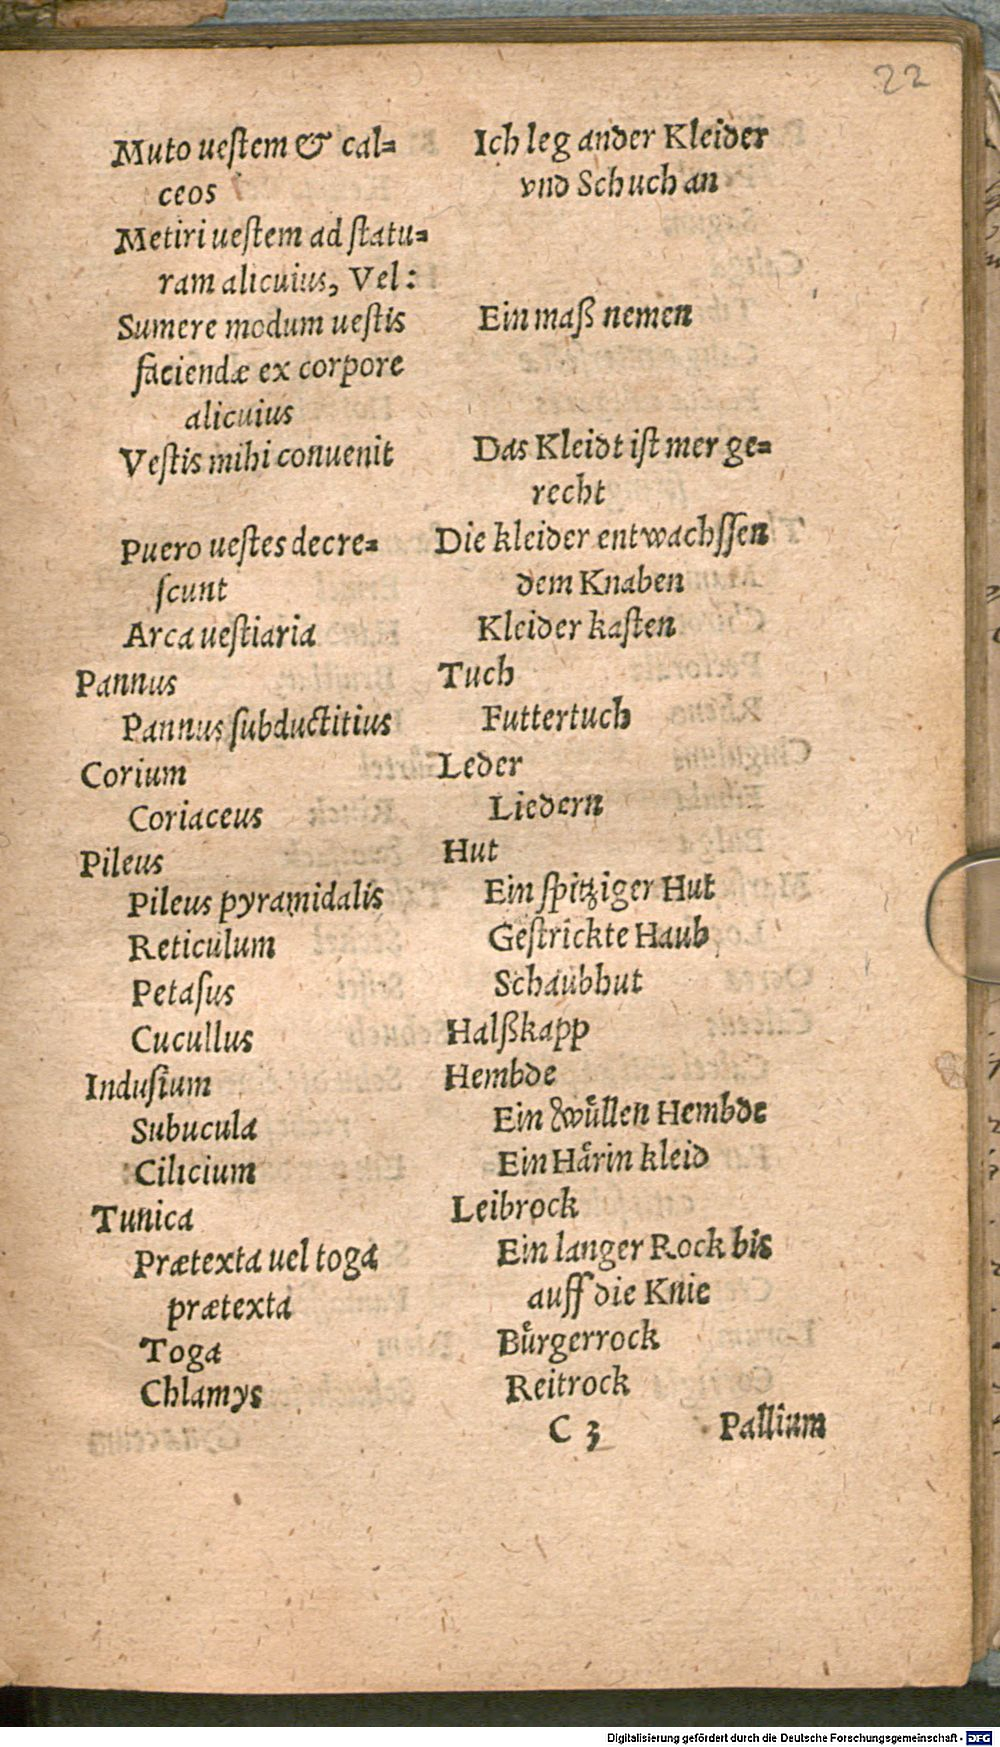 22
Muto ueſtem & cal⸗ Ich leg ander Kleider
ceos vnd Schuch an
Metiri ueſtem ad ſtatu⸗
ram alicuius, Vel:
Sumere modum ueſtis Ein maß nemen
faciendæ ex corpore
alicuius
Veſtis mihi conuenit Das Kleidt iſt mer ge⸗
recht
Puero ueſtes decre⸗ Die kleider entwachſſen
ſcunt dem Knaben
Arca ueſtiaria Kleider kaſten
Pannus Tuch
Pannus ſubductitius Futtertuch
Corium Leder
Coriaceus Liedern
Pileus Hut
Pileus pyramidalis Ein ſpitziger Hut
Reticulum Geſtrickte Haub
Petaſus Schaubhut
Cucullus Halßkapp
Induſium Hembde
Subucula Ein wuͤllen Hembde
Cilicium Ein Haͤrin kleid
Tunica Leibrock
Prætexta uel toga Ein langer Rock bis
prætexta auff die Knie
Toga Buͤrgerrock
Chlamys Reitrock
C 3 Pallium
Digitalisierung gefördert durch die Deutsche Forschungsgemeinschaft - DFG